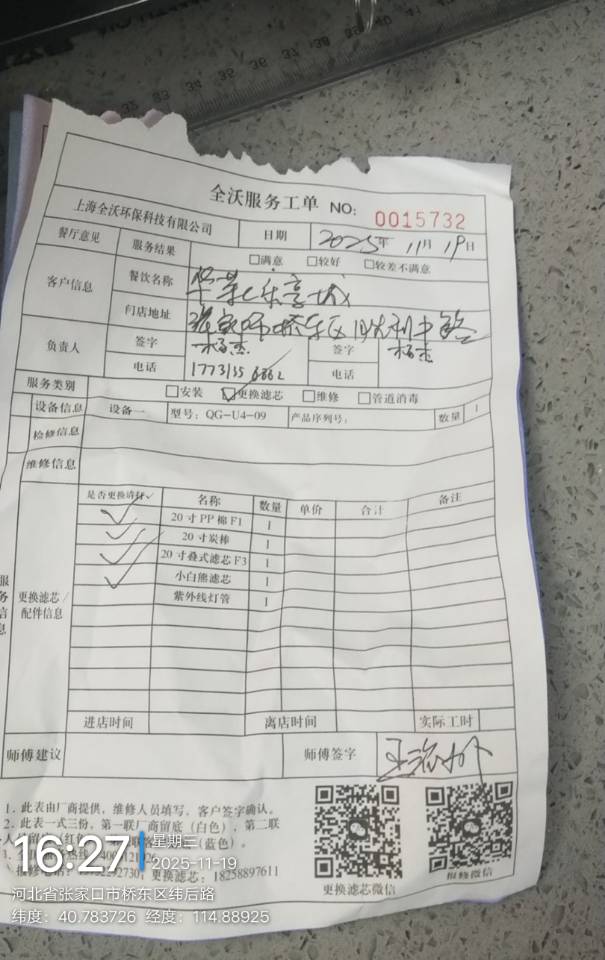 全沃服务工单 NO: 0015732
上海全沃环保科技有限公司 日期 2025年 11月 19日
餐厅意见 服务结果 □满意 □较好 □较差不满意
客户信息 餐饮名称
门店地址
负责人 签字 签字
电话 电话
服务类别 □安装 ☑更换滤芯 □维修 □管道消毒
设备信息 设备一 型号: QG-U4-09 产品序列号: 数量 1
检修信息
维修信息
服务信息
更换滤芯/配件信息
是否更换请打✓ 名称 数量 单价 合计 备注
✓ 20寸PP棉F1 1
✓ 20寸炭棒 1
✓ 20寸叠式滤芯F3 1
✓ 小白熊滤芯 1
紫外线灯管 1
进店时间 离店时间 实际工时
师傅建议 师傅签字
1. 此表由厂商提供，维修人员填写，客户签字确认。
2. 此表一式三份，第一联厂商留底（白色），第二联
（蓝色）。
更换滤芯: 18258897611
更换滤芯微信
报修微信
16:27 星期三
2025-11-19
河北省张家口市桥东区纬后路
纬度: 40.783726 经度: 114.88925